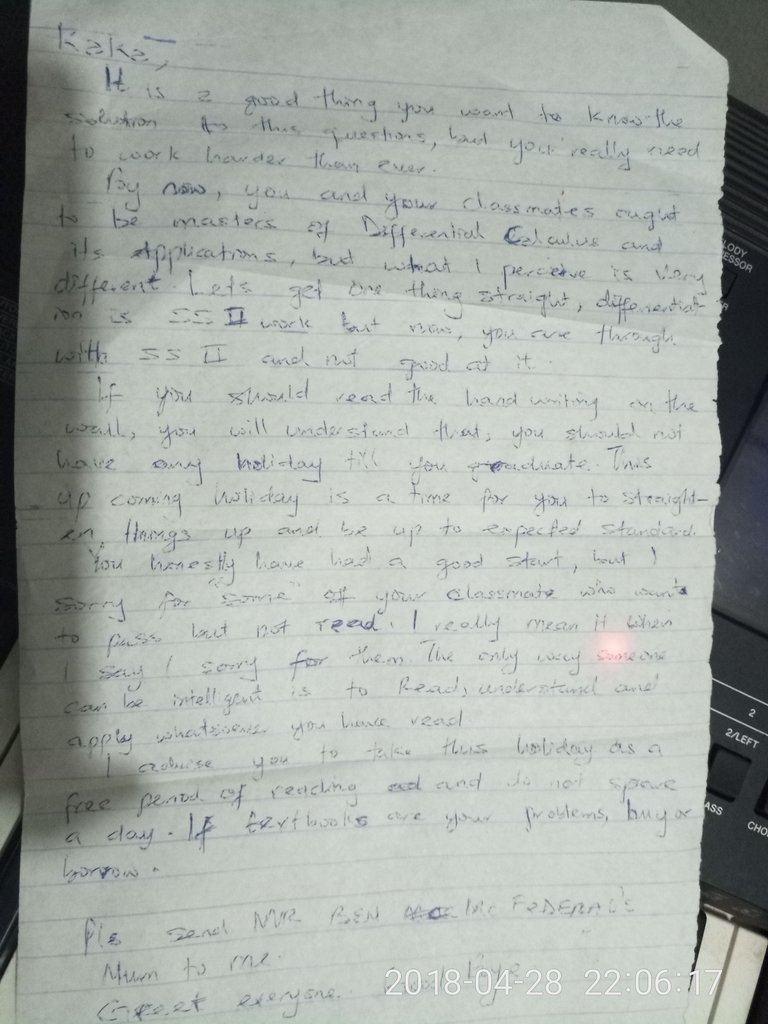 Keke,
It is a good thing you want to know the
solution to this questions, but you really need
to work harder than ever.
By now, you and your classmates ought
to be masters of Differential Calculus and
its Applications, but what I perceive is very
different. Lets get one thing straight, differentiat-
ion is SS II work but now, you are through
with SS II and not good at it.
If you should read the hand writing on the
wall, you will understand that, you should not
have any holiday till you graduate. This
up coming holiday is a time for you to straight-
en things up and be up to expected standard.
You honestly have had a good start, but I
sorry for "some" of your classmate who wants
to pass but not read. I really mean it when
I say I sorry for them. The only way someone
can be intelligent is to Read, understand and
apply whatsoever you have read
I advise you to take this holiday as a
free period of reading and do not spare
a day. If textbooks are your problems, buy or
borrow.
Pls send MR BEN FEDERAL'S
Mum to me.
Greet everyone. Bye
2018-04-28 22:06:17
LODY
ESSOR
2
2/LEFT
ASS
CHO